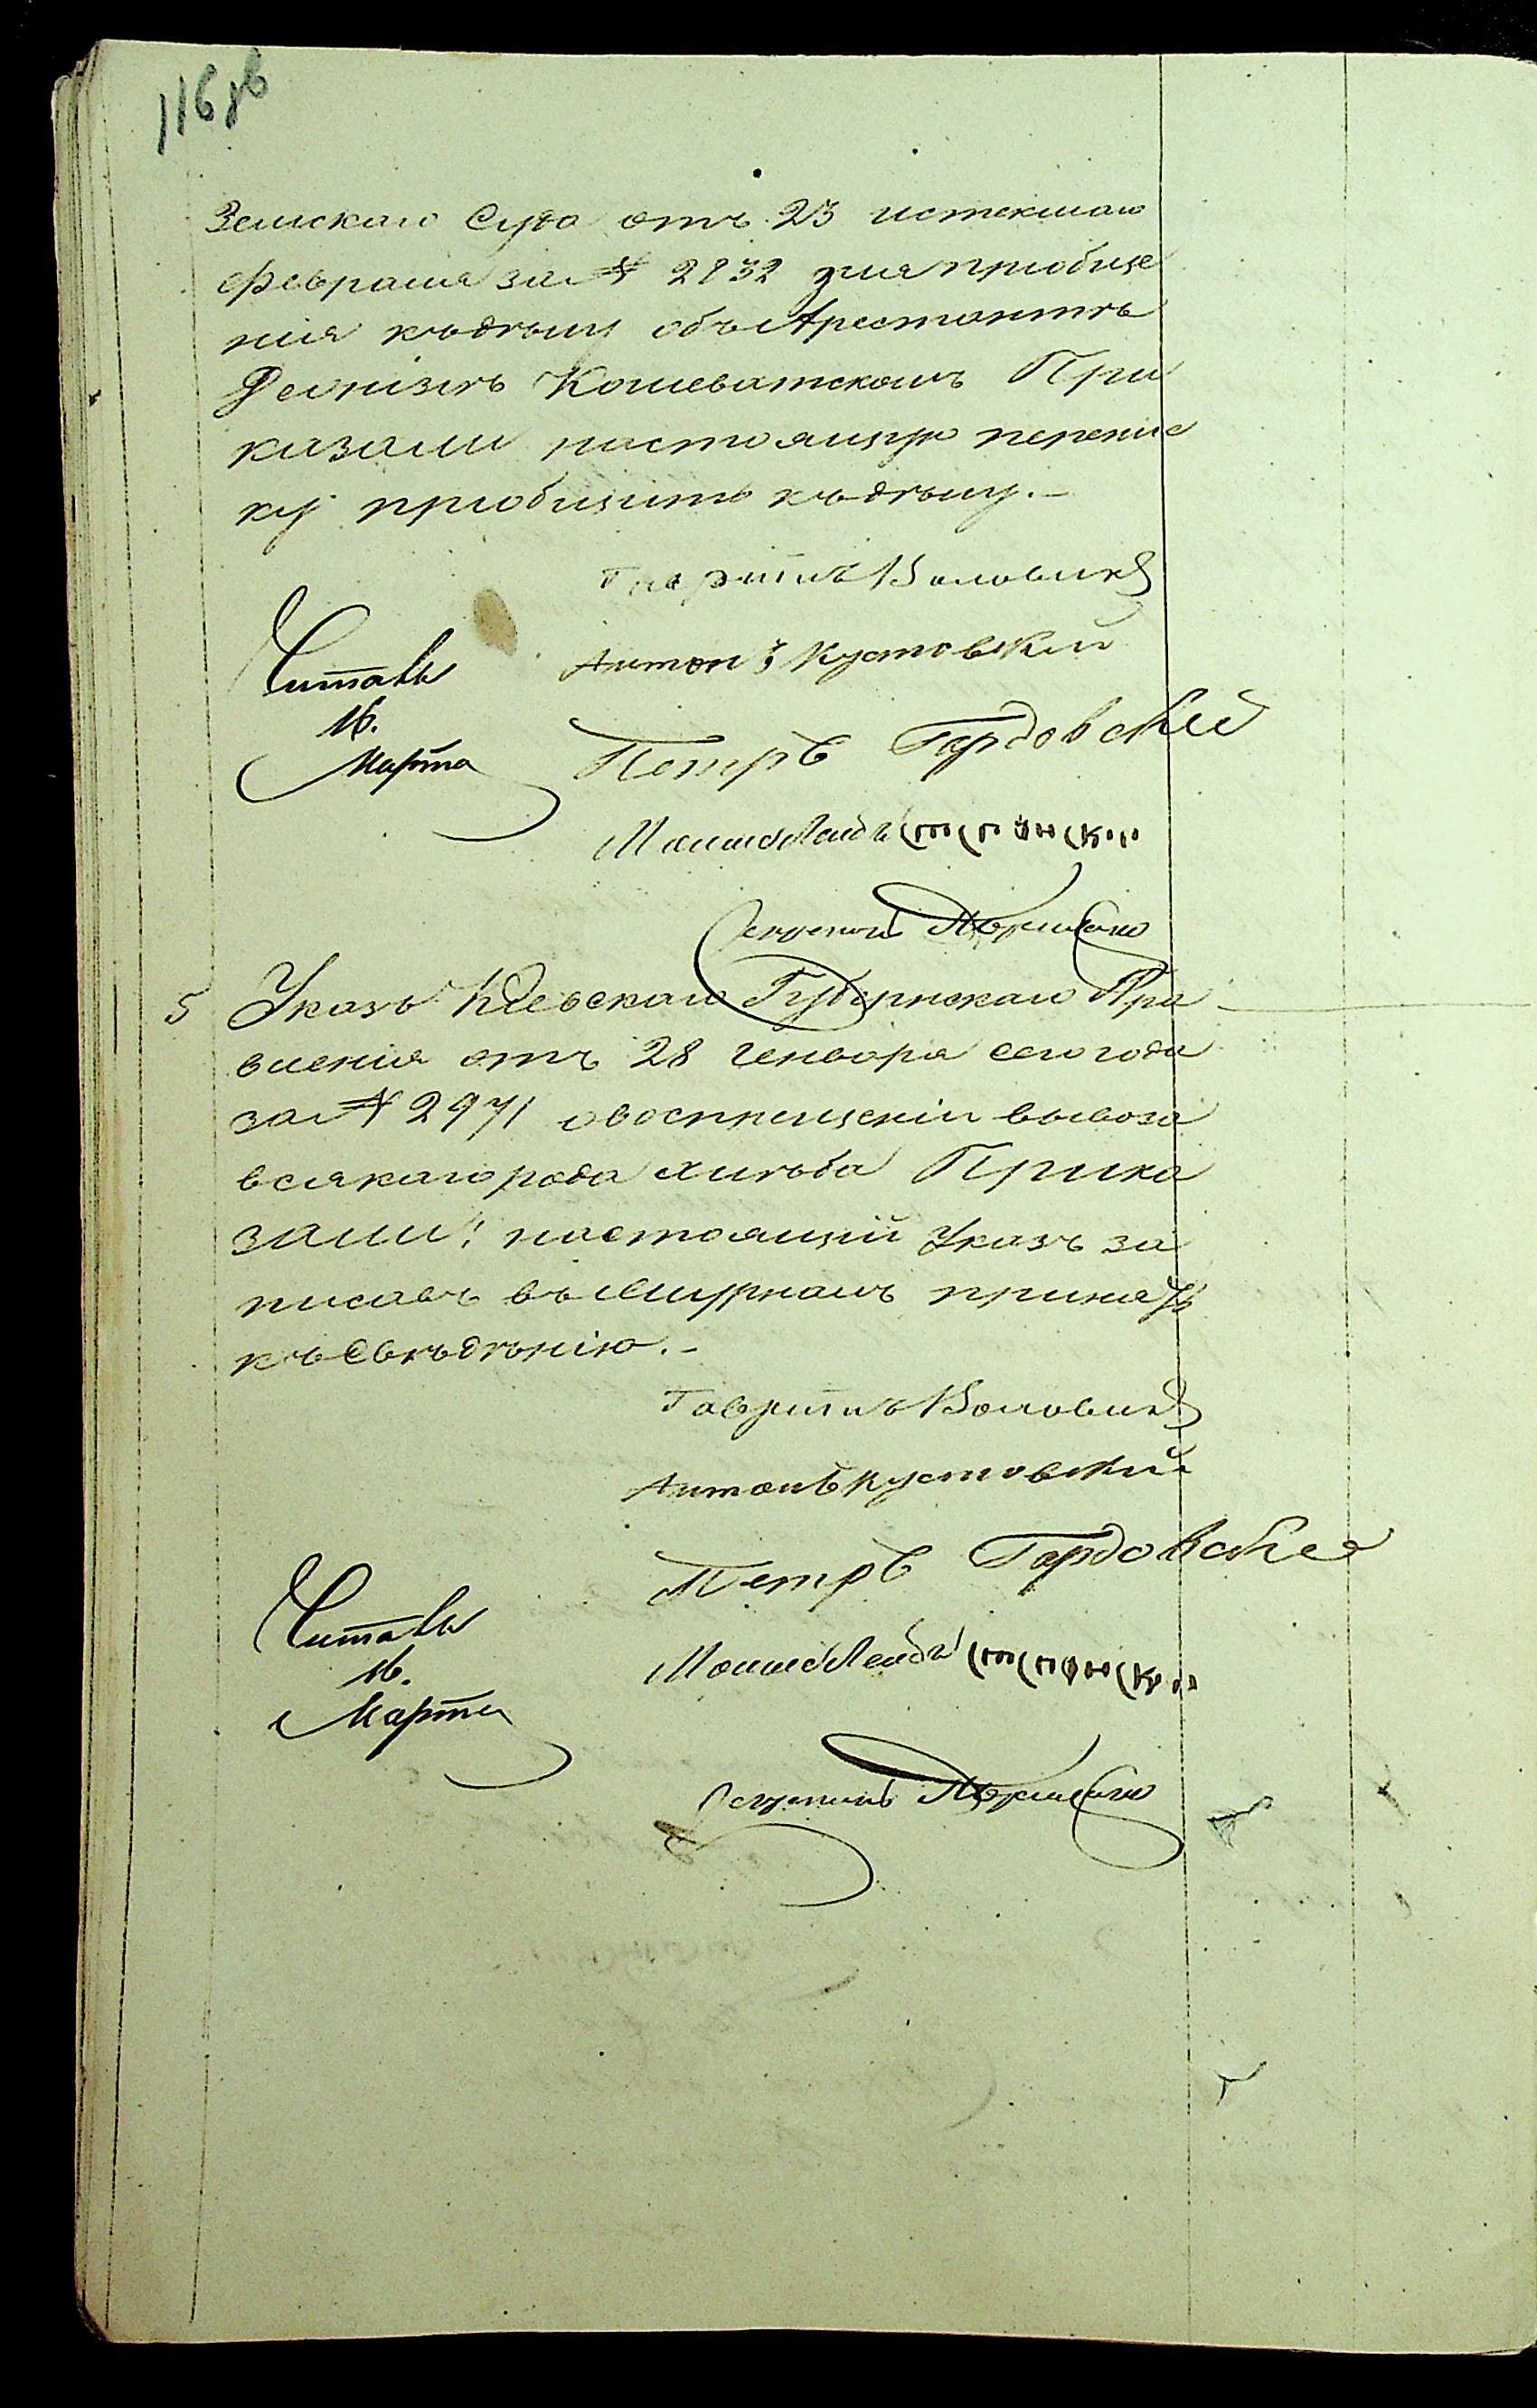 116 об
Земскаго Суда отъ 23 истекшаго
Февраля за № 2832 для приобще
нія къ дѣлу объ Арестантѣ
Денізѣ Кошеватскомъ При
казали настоящую перепис
ку приобщить къ дѣлу.-
Гавриилъ Воловикъ
Антонъ Кустовский
Читалъ
16.
Марта
Петръ Гордовский
Мошко Лейбъ
Секретарь
5 Указъ Кіевскаго Губернскаго Пра
вленія отъ 28 Генваря сего года
за № 2971 о воспрещеніи вывоза
всякаго рода хлѣба Прика
зали: настоящій Указъ за
писавъ въ Журналъ принять
къ Свѣдѣнію.-
Гавриилъ Воловикъ
Антонъ Кустовский
Петръ Гордовский
Читалъ
16.
Марта
Мошко Лейбъ
Секретарь